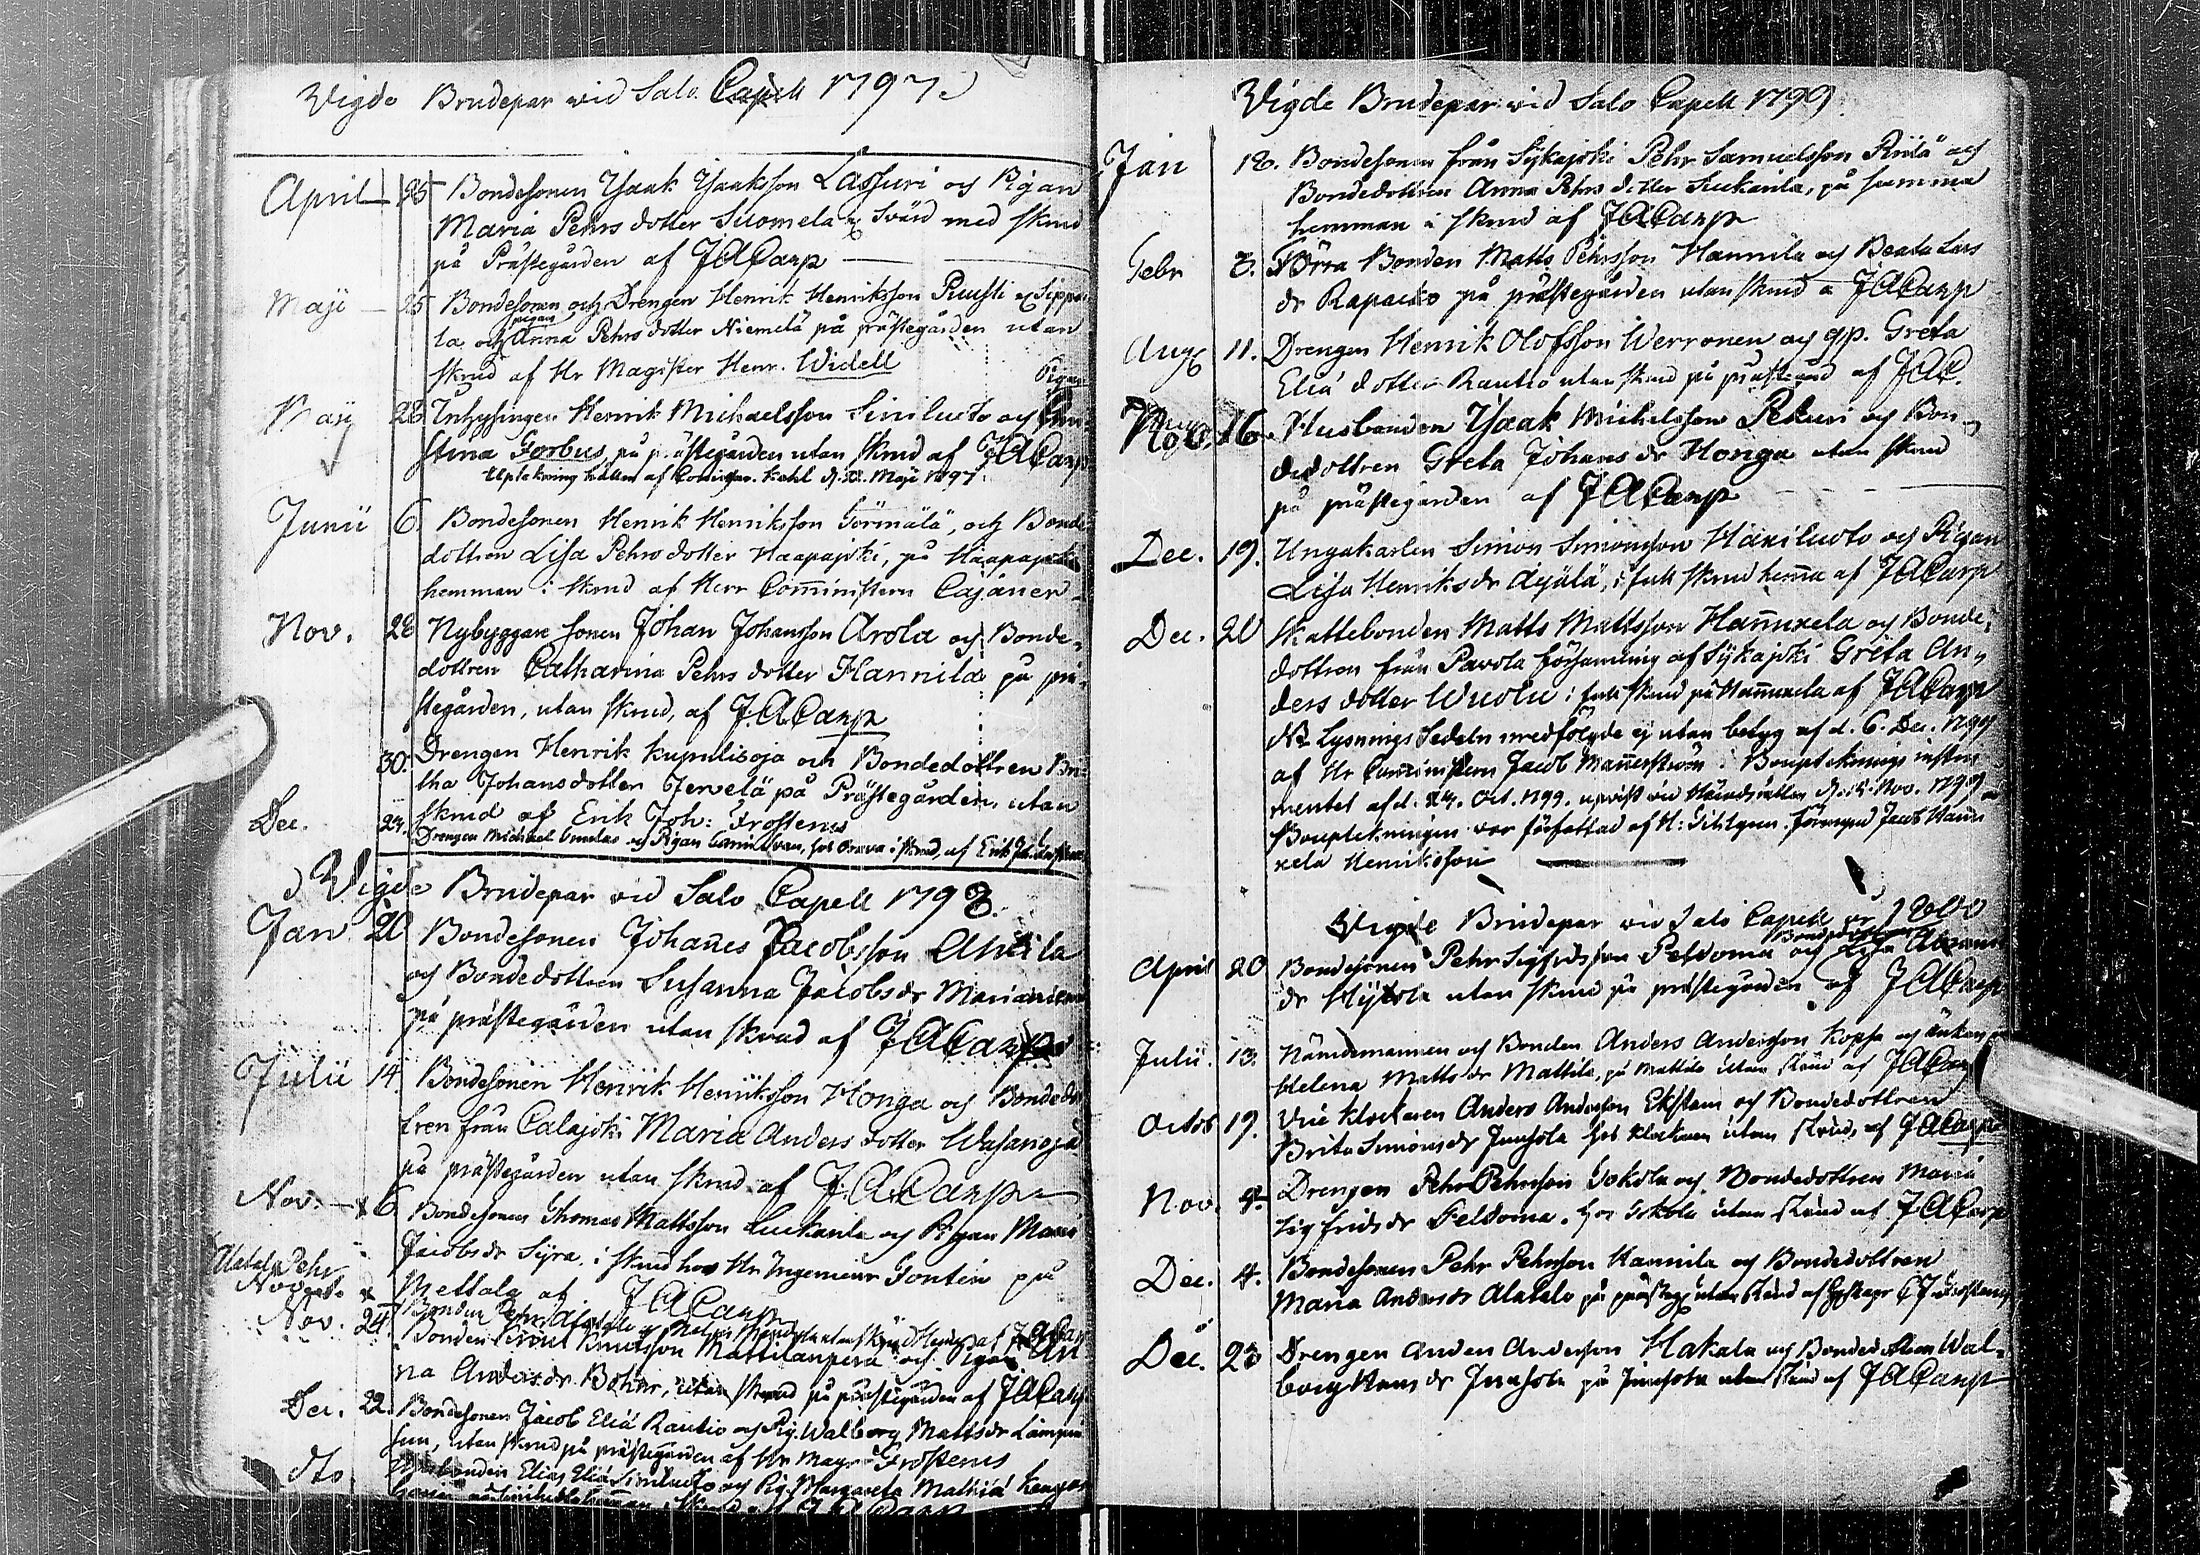 Vigde Brudepar vid Salo Capell 1797.
April 25 Bondesonen Isaak Isaksson Lassuri och Pigan
Maria Pehrs dotter Suomela Svärd med skrud
på Prästegården af JACarp
Maji 25 Bondesonen och Drengen Henrik Henriksson Ruusti Sippo-
la och pigan Anna Pehrs dotter Niemelä på prästegården utan
skrud af Hr Magister Henr. Widell
Maij 28 Inhysingen Henrik Michaelsson Siniluoto och Pigan
Stina Forbus på prästegården utan skrud af JACarp
Uptekning hållen af Maji 1797.
Junii 6 Bondesonen Henrik Henriksson Törmälä, och Bonde
dottren Lisa Pehrs dotter Haapajoki, på Haapajoki
hemman i skrud af Herr Comministern Cajaner
Nov. 28 Nybyggare sonen Johan Johansson Arola och Bonde-
dottren Catharina Pehrs dotter Hannila på prä-
stegården, utan skrud, af JACarp
30. Drengen Henrik Kupulisoja och Bondedottren Bri-
tha Johansdotter Jervelä på Prästegården utan
skrud af Erik Joh: Frosterus
Dec. 27. Drengen Michael och Pigan i skrud, af Erik Joh. Frosterus
Vigde Brudepar vid Salo Capell 1798.
Jan. 20 Bondesonen Johannes Jacobsson Ahlola
och Bondedottren Susanna Jacobsdr Marianiemi
på prästegården utan skrud af JACarp
Julii 14 Bondesonen Henrik Henriksson Honga och Bondedot
tren från Calajoki Maria Anders dotter Wasanoja
på prästegården utan skrud af JACarp
Nov. 6 Bondesonen Thomas Mattsson Luckarila och Pigan Maria
Jacobsdr Syra. i skrud hos Hr Ingenieur Gonten på
Mettala af JACarp
Alatalo Pehr
Bonden Pehr Alatalo utan skrud af JACarp
Nov. 24 Bonden Knut Knutsson Mattilanperä och Pigan An
na Andersdr Bohm, utan skrud på prästegården af JACarp
Dec. 22. Bondesonen Jacob Eliæ Rautio och Pig. Walborg Mattsdr Lämpsä
utan skrud på prästegården af Hr Mag. Frosterus
dto. Husbonden Elias Eliæ Siniluoto och Pig. Margareta Mathiæ
Vigde Brudepar vid Salo Capell 1799.
Jan 18. Bondesonen från Sijkajoki Pehr Samuelsson Rixilä och
Bondedottren Anna Pehrs dotter Luckarila, på samma
hemman i skrud af JACarp
Febr 3. Förra Bonden Matts Pehrsson Hannila och Beata Lars
dr Rapacko på prästegården utan skrud a JACarp
Aug 11. Drengen Henrik Olofsson Werronen och qp. Greta
Eliæ dotter Rautio utan skrud på prästgård af JAC.
Nov. 16. Husbonden Isaak Michelsson Pekuri och Bon-
dedottren Greta Johans dr Honga utan skrud
på prästegården af JACarp
Dec. 19. Ungakarlen Simon Simonsson Hariluoto och Pigan
Lisa Henriks dr Ayälä, i full skrud hema af JACarp
Dec. 20 Skattebonden Matts Mattsson Hannuxela och Bonde-
dottren från Pavola församling af Sijkajoki Greta An-
ders dotter Wuolu i full skrud på Hannuxela af JACarp
NB Lysnings Sedeln medfölgde ej utan betyg af d. 6. Dec. 1799
af Hr Comministern Jacob Mannerström. Boupteknings instru
mentet af d. 24. Oct. 1799. upvist vid Häradsrätten d. Nov. 1799
Bouptekningen var författad af H: förmynd Jacob Hannu
xela Henriksson
Vigde Brudepar vid Salo Capell år 1800
April 20 Bondesonen Pehr Sigfridsson Peldoma och Bondedottren Lisa Abrams
dr Hijtola utan skrud på prästegården af JACarp
Julii. 13. Nämdemannen och Bonden Anders Andersson Kopsa och änkan
Helena Matts dr Mattila, på Mattila utan skrud af JACarp
Octob 19. Vice Klockaren Anders Andersson Ekstam och Bondedottren
Brita Simonsdr Junsola hos klockaren utan skrud, af JACarp
Nov. 4. Drengen Pehr Pehrsson Jokela och Bondedottren Maria
Sigfrids dr Peldoma. hos Jokela utan skrud af JACarp
Dec. 4. Bondesonen Pehr Pehrsson Hannila och Bondedottren
Maria Anders dr Alatalo på prästeg. utan skrud af EJFrosterus
Dec. 28 Drengen Anders Andersson Hakala och Bondedottren Wal-
borg Hans dr Junsola på Junsola utan skrud af JACarp